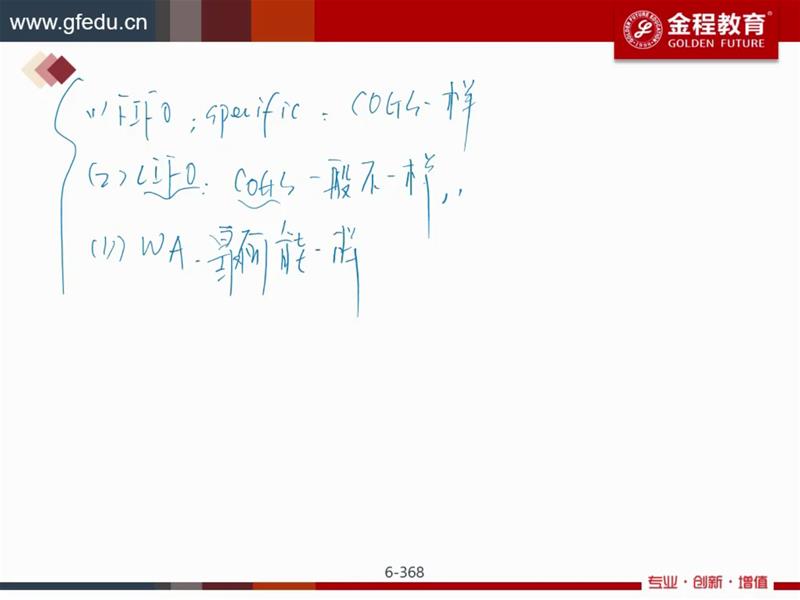 www.gfedu.cn
金程教育
GOLDEN FUTURE
(1) FIFO ; specific : COGS一样
(2) LIFO : COGS一般不一样,,
(3) WA . 能一样
6-368
专业·创新·增值